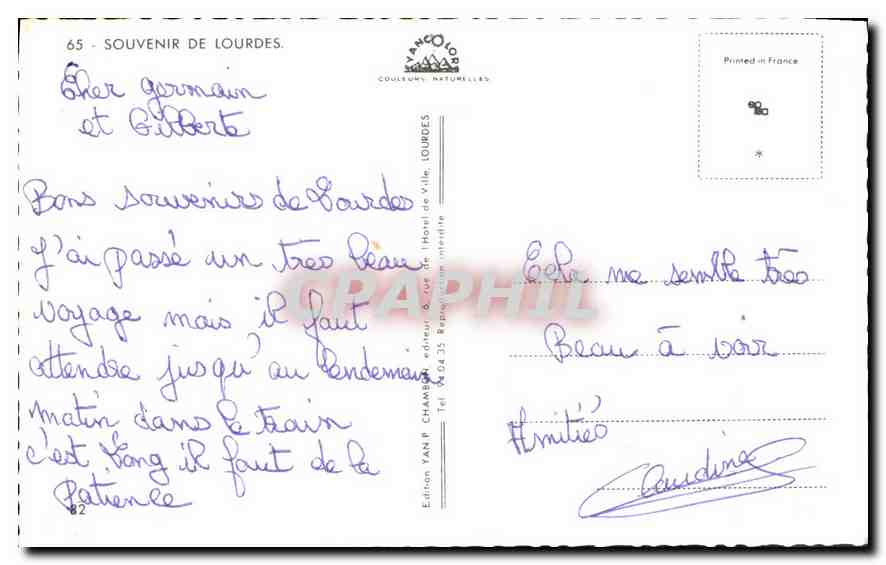 65 - SOUVENIR DE LOURDES.
YANCOLOR
COULEURS NATURELLES
Printed in France
*
Cher germain
et Gilberte
Bons souvenirs de Lourdes
J'ai passé un tres beau
voyage mais il faut
attendre jusqu'au lendemain
matin dans le train
c'est long il faut de la
patience
82
Edition YAN P. CHAMBON editeur 6, rue de l'Hotel de Ville, LOURDES
Tel. 94.04.35 Reproduction interdite
CPAPHIL
Cela me semble très
Beau à voir
Amitiés
Claudine